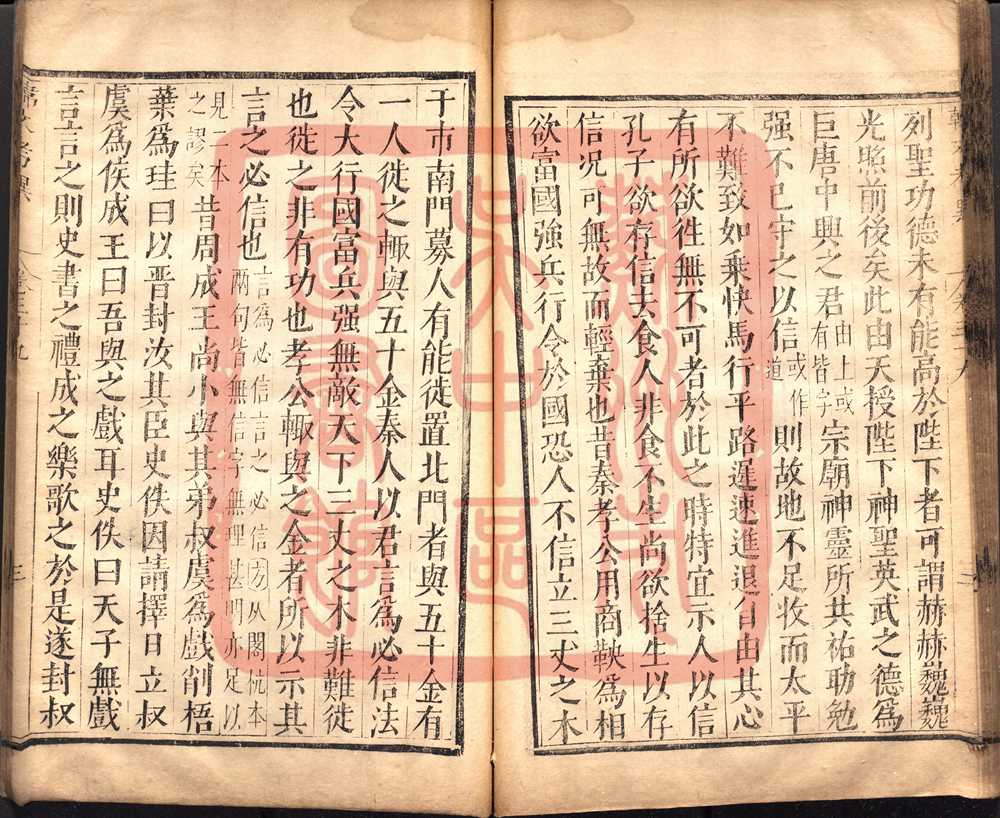 列聖功德未有能高於陛下者可謂赫赫巍巍
光照前後矣此由天授陛下神聖英武之德爲
巨唐中興之君由上或有皆字宗廟神靈所共祐助勉
强不已守之以信或作道則故地不足收而太平
不難致如乘快馬行平路遲速進退自由其心
有所欲徃無不可者於此之時特宜示人以信
孔子欲存信去食人非食不生尚欲捨生以存
信况可無故而輕棄也昔秦孝公用商鞅爲相
欲富國強兵行令於國恐人不信立三丈之木
于市南門募人有能徙置北門者與五十金有
一人徙之輙與五十金秦人以君言爲必信法
令大行國富兵强無敵天下三丈之木非難徙
也徙之非有功也孝公輙與之金者所以示其
言之必信也言爲必信言之必信方从閣杭本兩句皆無信字無理甚明亦足以
見二本之謬矣昔周成王尚小與其弟叔虞爲戲削梧
葉爲珪曰以晋封汝其臣史佚因請擇日立叔
虞爲侯成王曰吾與之戲耳史佚曰天子無戲
言言之則史書之禮成之樂歌之於是遂封叔
三